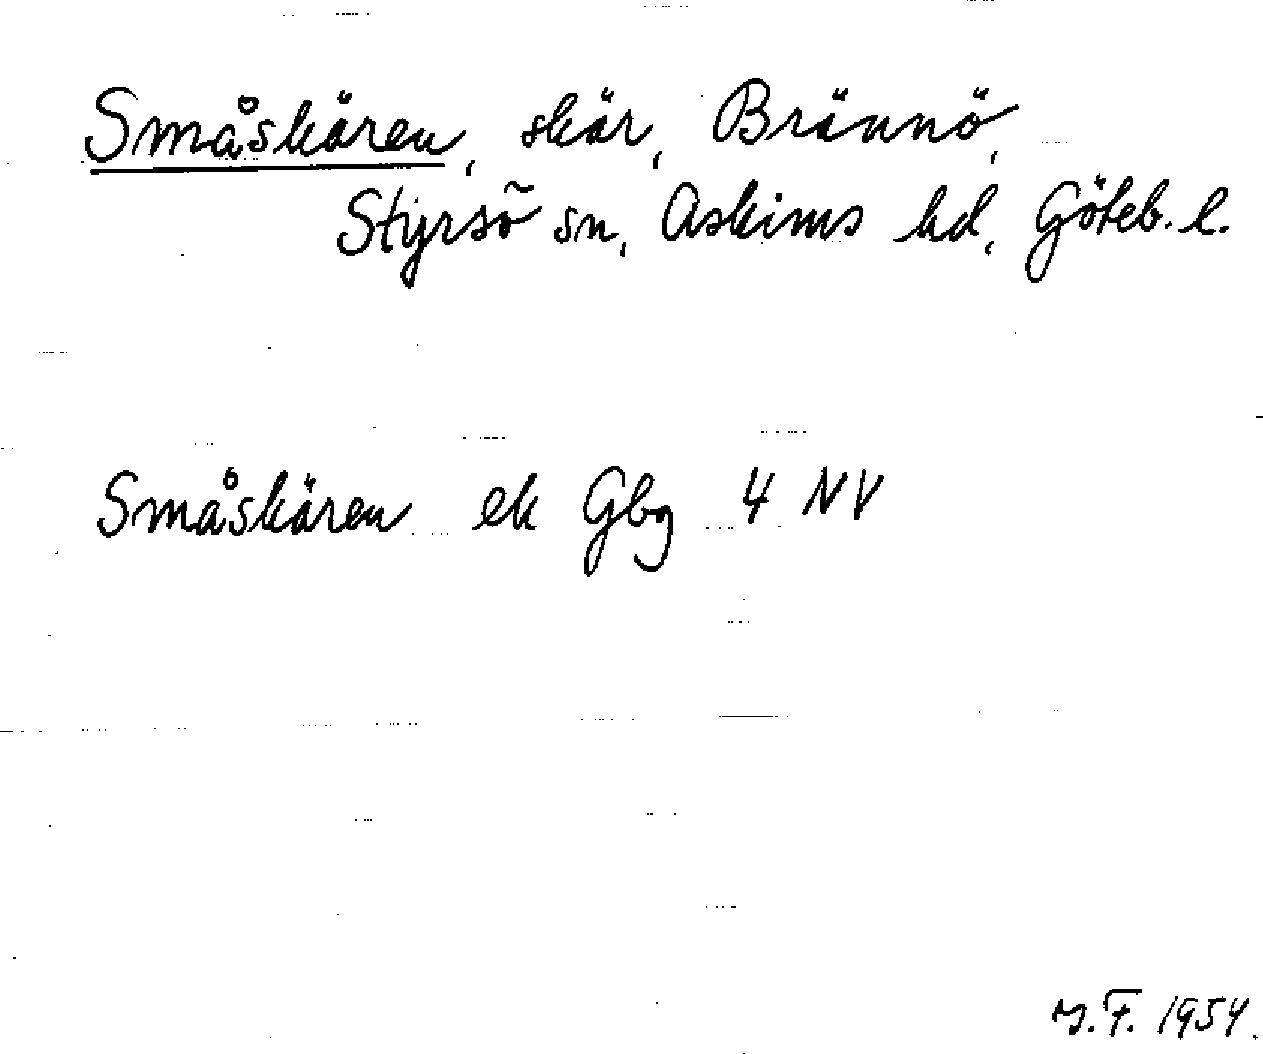 Småskären, skär, Brännö,
Styrsö sn, Askims hd, Göteb. l.
Småskären ek Gbg 4 NV
F. 1954.